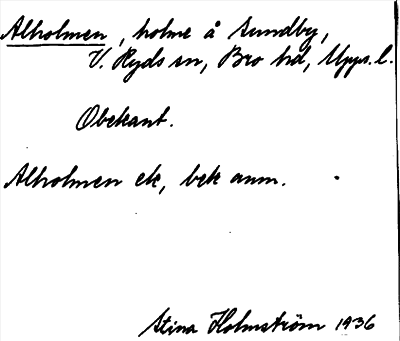 Alholmen, holme å Sundby,
V. Ryds sn, Bro hd, Upps. l.
Obekant.
Alholmen ek, bek anm.
Stina Holmström 1936